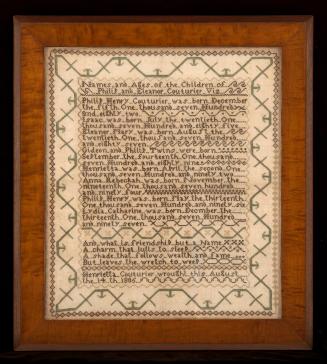 Names and Ages of the Children of
Philip and Eleanor Couturier Viz
Philip Henry Couturier was born December
the fifth One thousand seven Hundred
and eighty two
Isaac was born July the twentieth One
thousand seven Hundred and eighty five
Eleanor Mary was born August the
twentieth One thousand seven Hundred
and eighty seven
Gideon and Philip Twins were born
September the fourteenth One thousand
seven Hundred and eighty nine
Henrietta was born April the second One
thousand seven Hundred and ninety two
Anna Rebeckah was born November the
nineteenth One thousand seven hundred
and ninety four
Philip Henry was born May the thirteenth
One thousand seven Hundred and ninety six
Lydia Catharine was born December the
thirteenth One thousand seven Hundred
and ninety seven
And what is friendship but a Name
A charm that lulls to sleep
A shade that follows wealth and fame
But leaves the wretch to weep
Henrietta Couturier wrought this August
the 14 th 1806